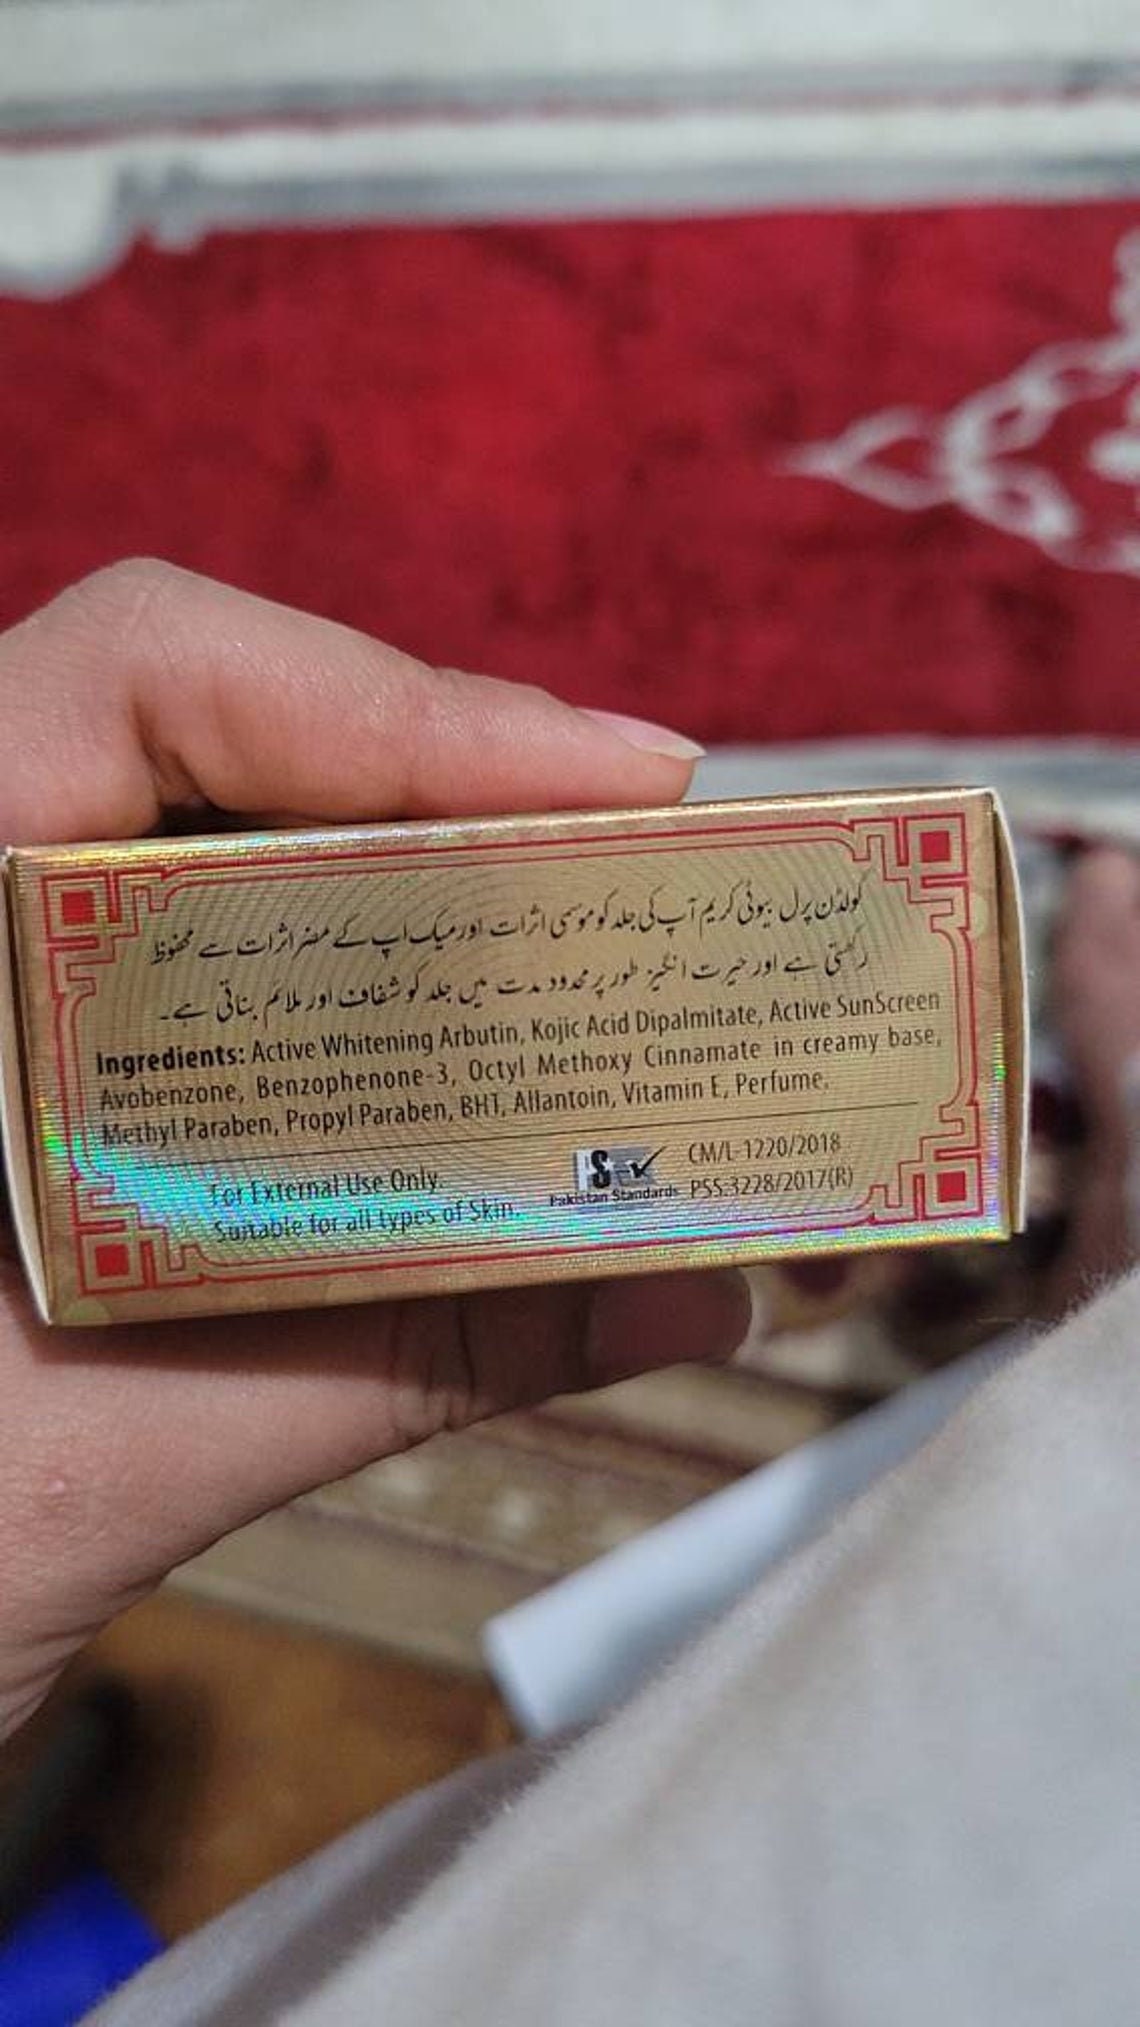 گولڈن پرل بیوٹی کریم آپ کی جلد کو موسمی اثرات اور میک اپ کے مضر اثرات سے محفوظ
رکھتی ہے اور حیرت انگیز طور پر محدود مدت میں جلد کو شفاف اور ملائم بناتی ہے۔
Ingredients: Active Whitening Arbutin, Kojic Acid Dipalmitate, Active SunScreen
Avobenzone, Benzophenone-3, Octyl Methoxy Cinnamate in creamy base,
Methyl Paraben, Propyl Paraben, BHT, Allantoin, Vitamin E, Perfume.
For External Use Only.
Suitable for all types of Skin.
PS
Pakistan Standards
CM/L-1220/2018
PSS:3228/2017(R)